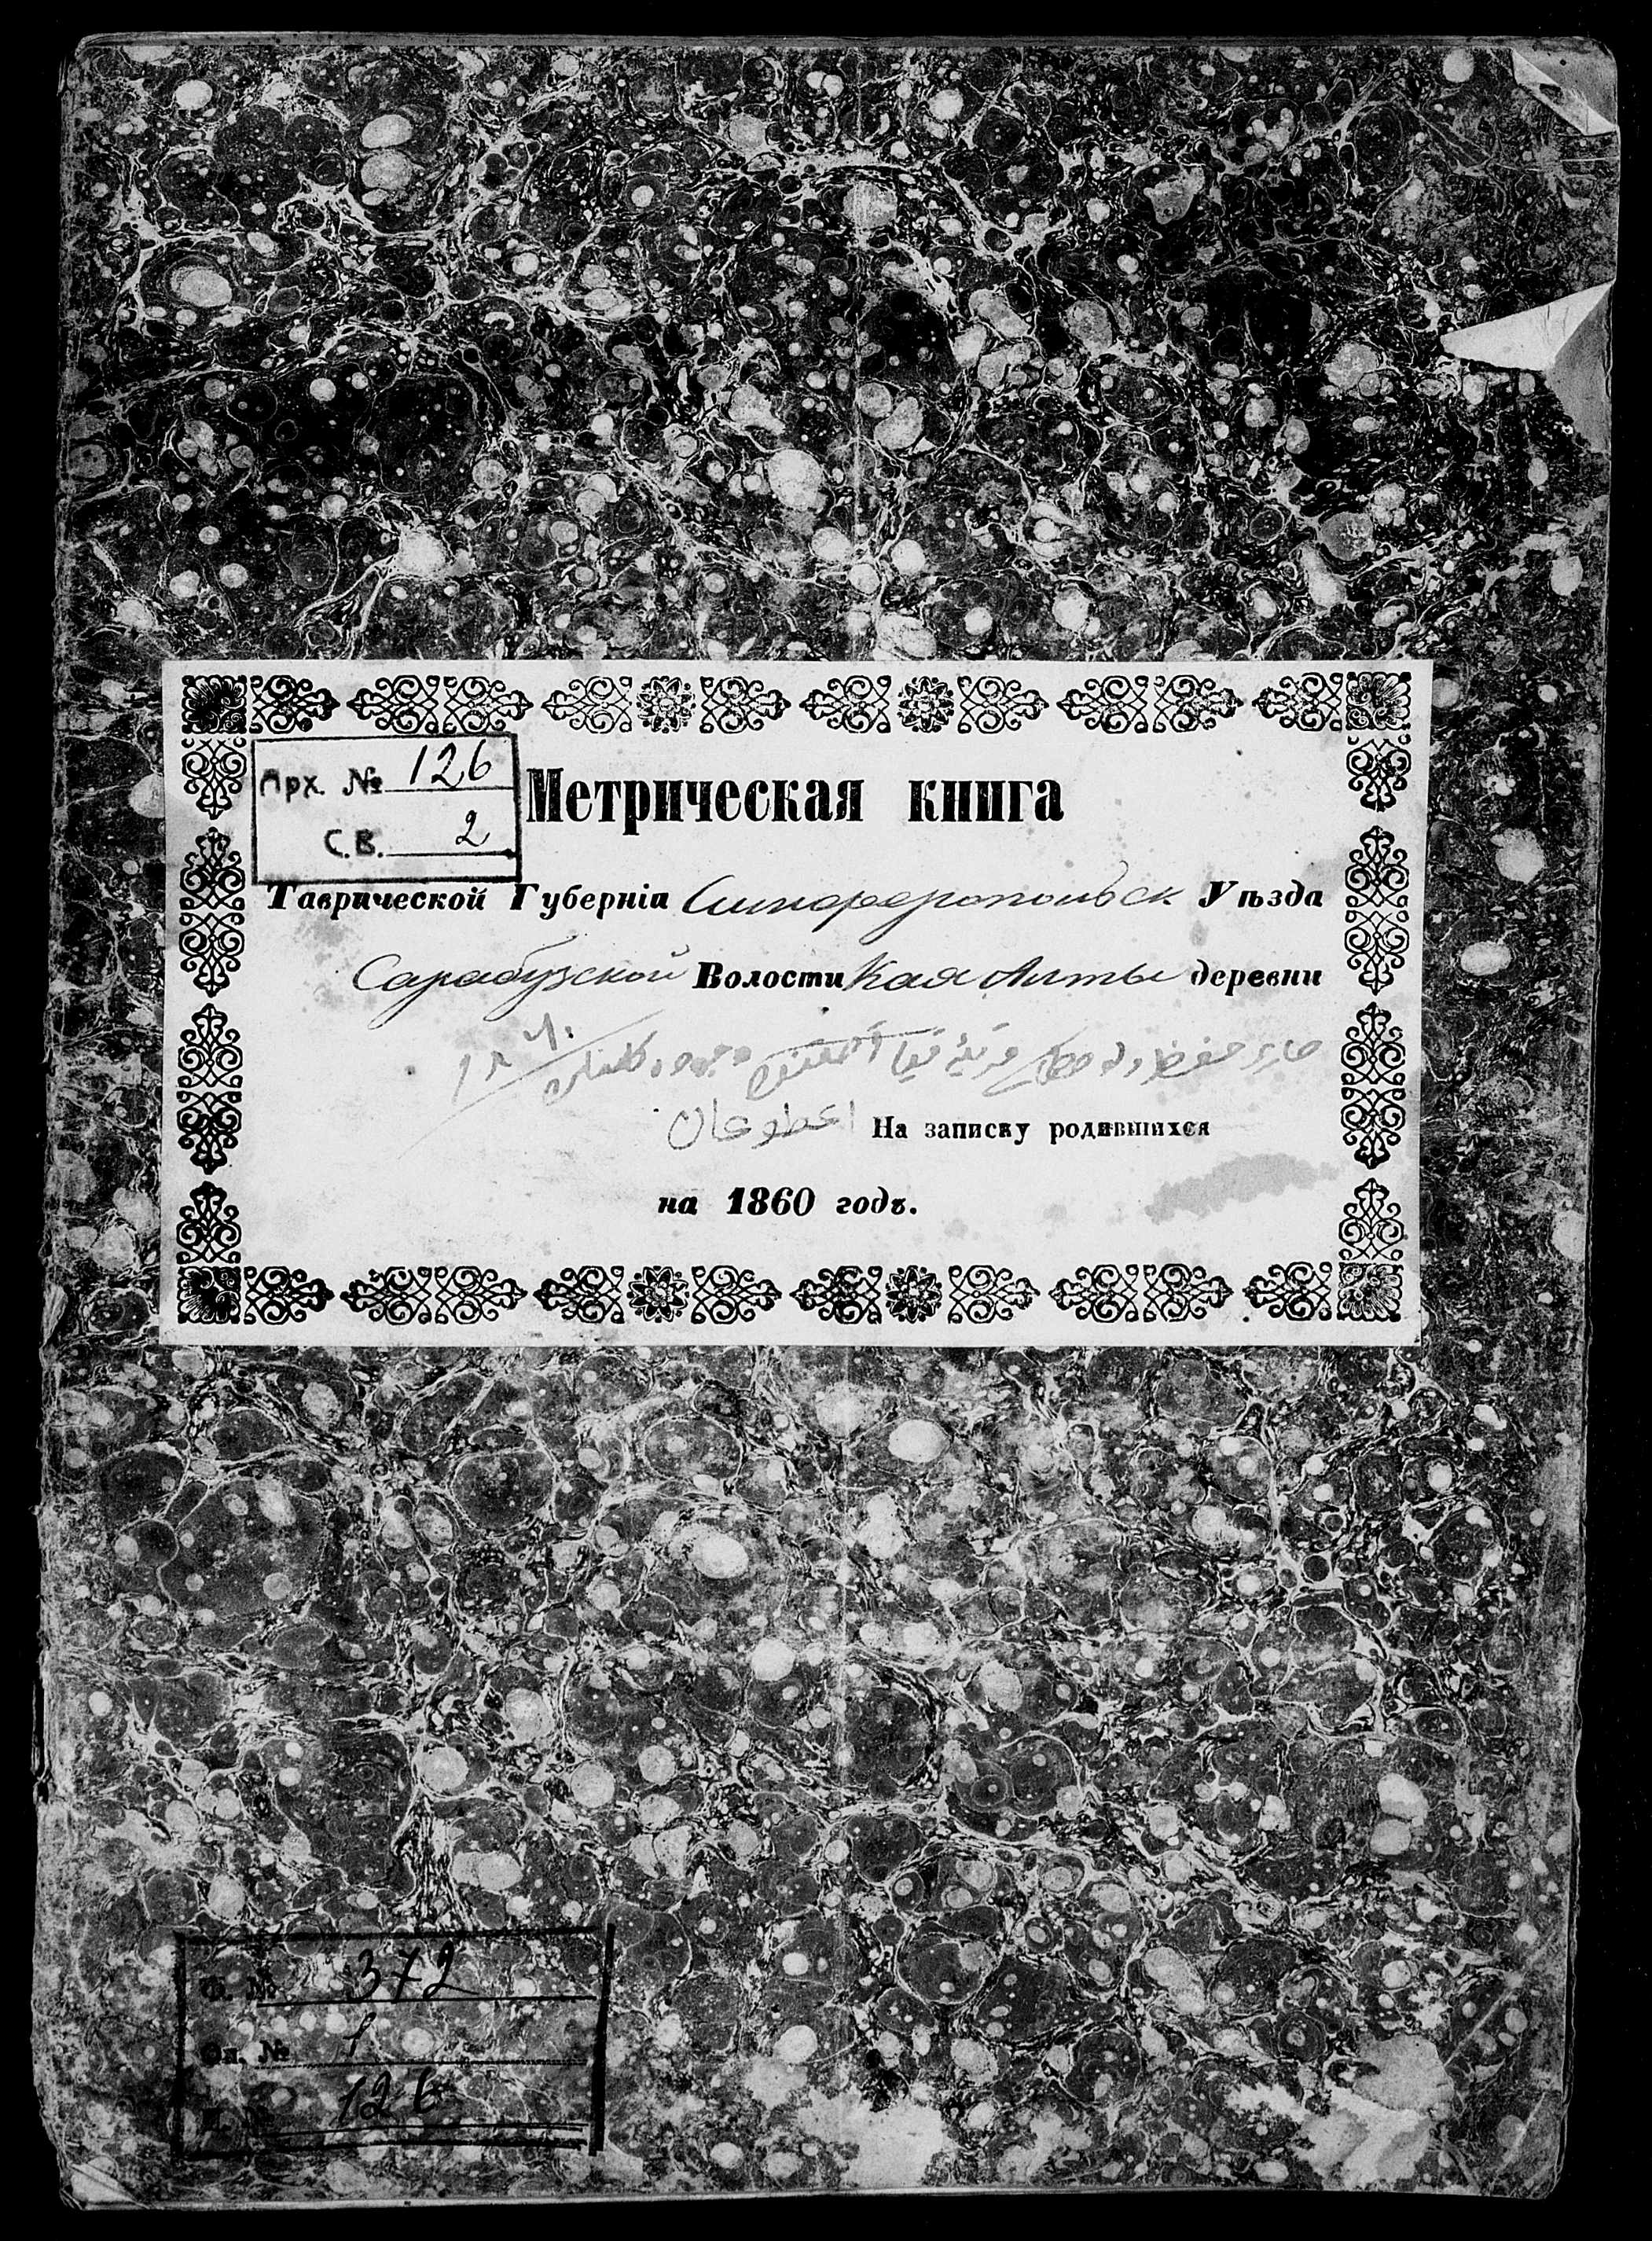 Арх. № 126
С.В. 2
Метрическая книга
Таврической Губерніи Симферопольск Уѣзда
Сарабузской Волости Кая Алты деревни
١٨٦٠
На записку родившихся
на 1860 годъ.
Ф. № 372
Оп. № 1
126